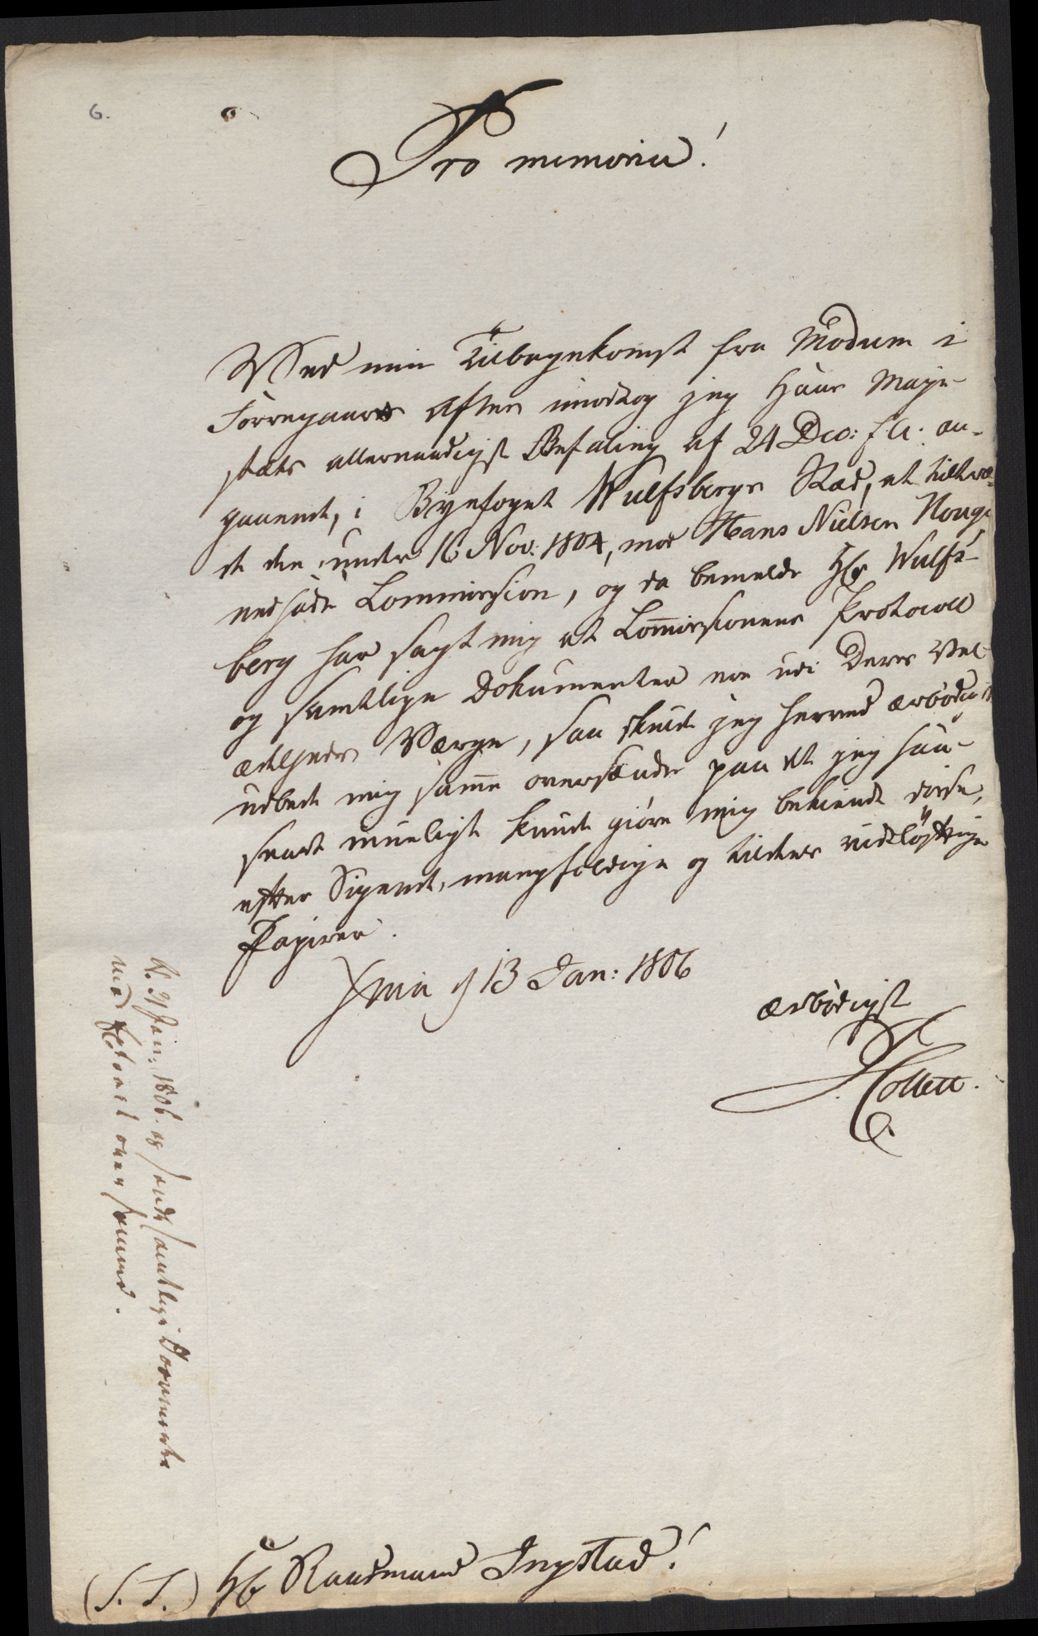 6.
Pro memoria!
Ved min Tilbagekomst fra Modum i
Forregaars Aften imodtog jeg Hans Maje-
stæts allernaadigst Befaling af 24 Dec: f. A. an-
gaaende, i Byefoget Wulfsbergs Sted, at tiltræ-
de den under 16 Nov. 1804, mod Hans Nielsen Houge
nedsatte Commission, og da bemelte Hr Wulfs-
berg har sagt mig at Com̅issionens Protocoll
og samtlige Dokumenter ere udi Deres Vel-
ædelheds Værge, saa skulde jeg herved ærbødigst
udbede mig sam̅e oversendte paa det jeg saa-
snart mueligt kunde giøre mig bekiendt disse,
efter Sigende, mangfoldige og tildeels vidtløftige
Papirer.
Xnia d 13 Jan: 1806
ærbødigst
J. Collett.
Jan: 1806. og sendt samtlige Documenter
med over samme.
(S. T.) Hr Raadmand Ingstad!